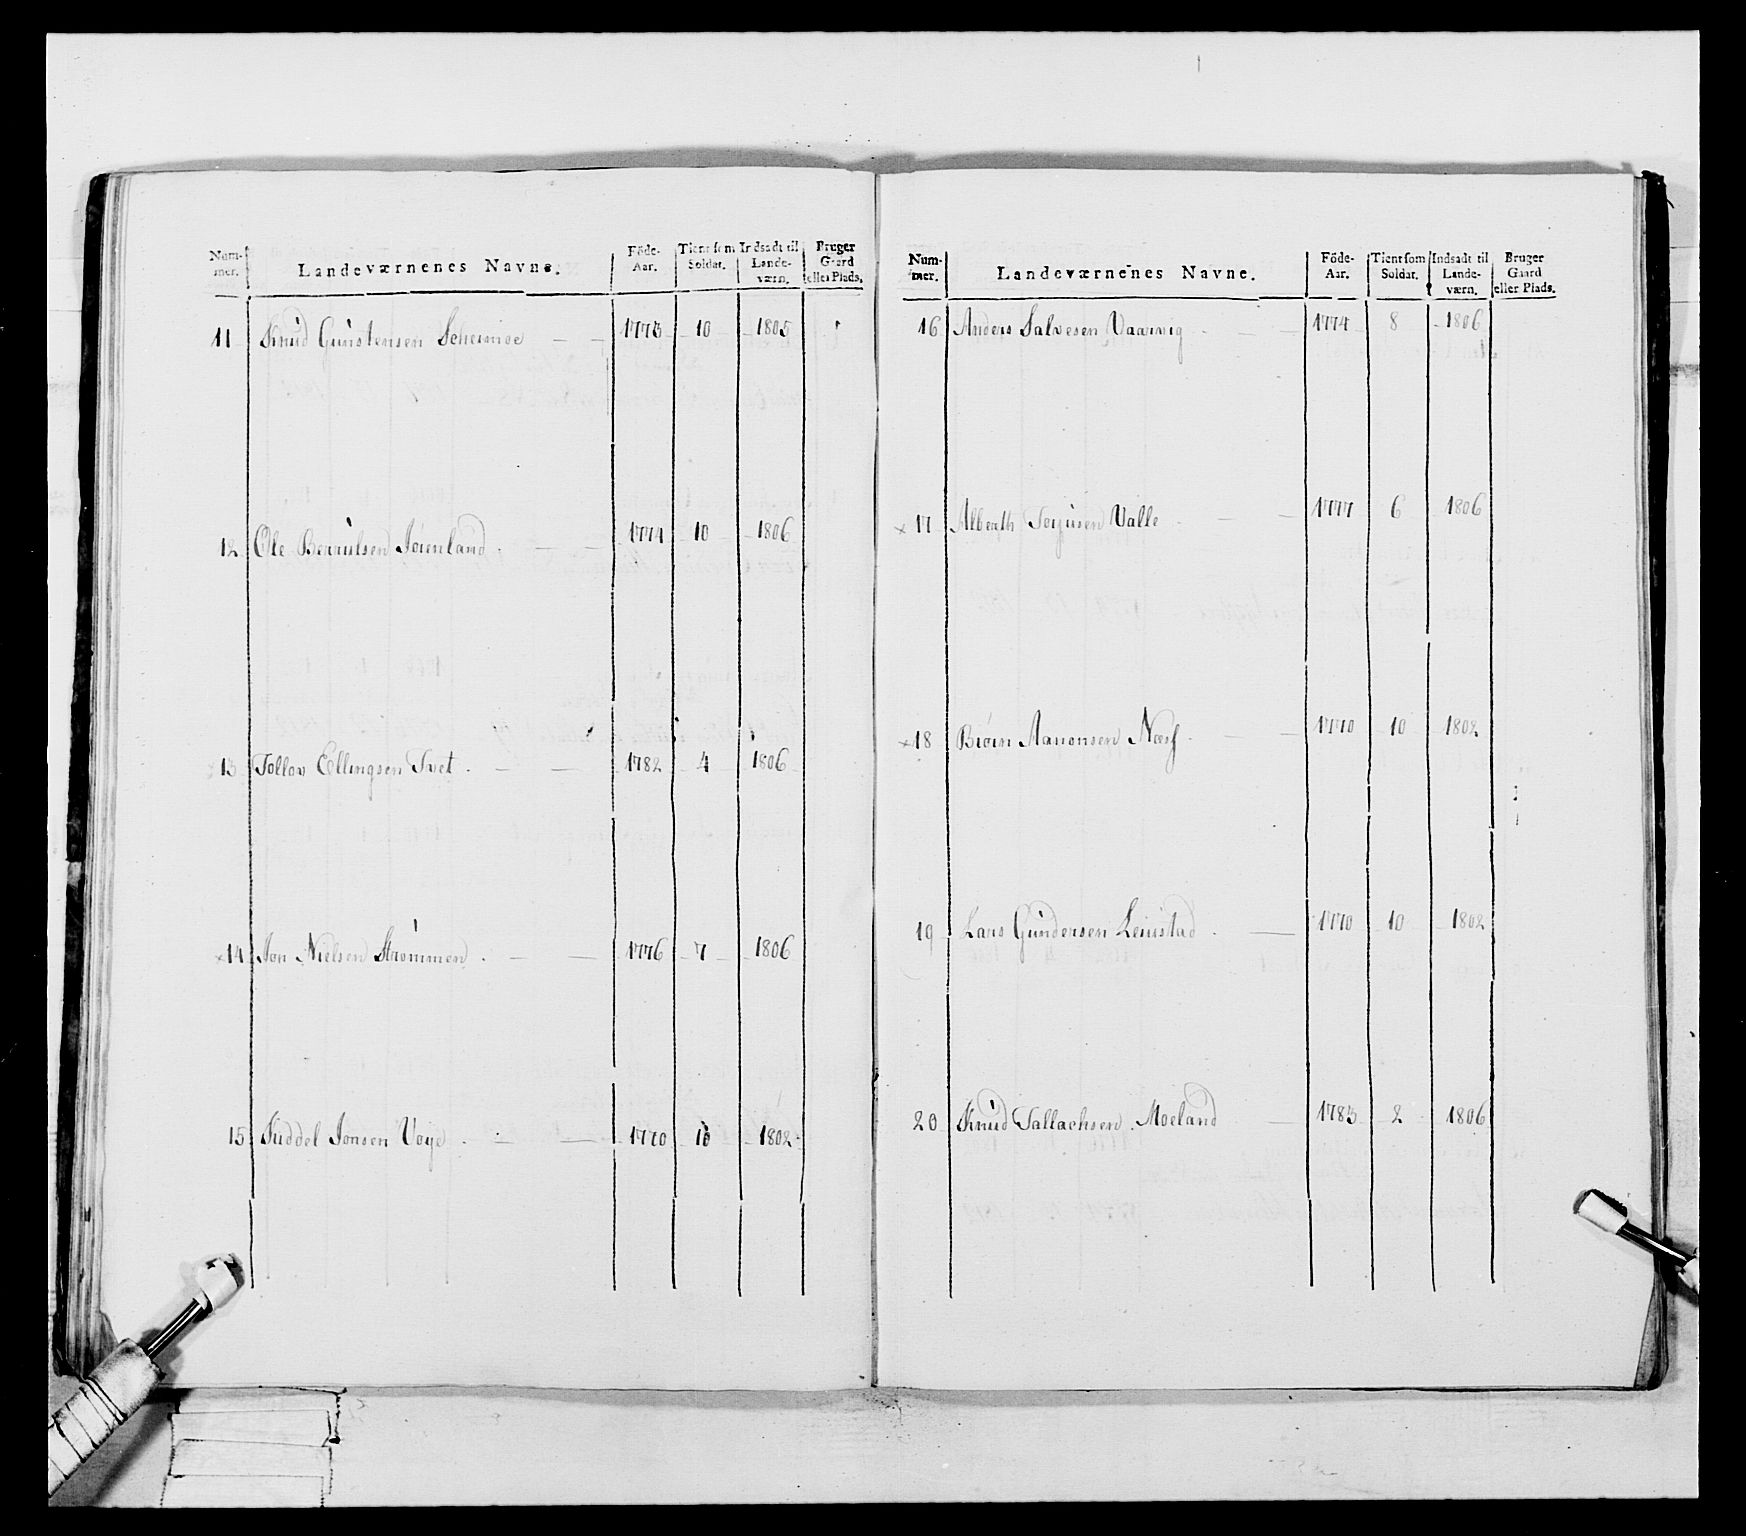 Num- Landeværnenes Navne. Föde- Tient som Indsadt til Bruger
mer. Aar. Soldat. Lande- Gaard
værn. eller Plads.
11 Knud Gunstensen 1773 10 1805
12 Ole Berruulsen Jorenland 1774 10 1806
13 Tollov Ellingsen Tvet 1782 4 1806
×14 Jon Nielsen Strømmen 1776 7 1806
15 Siddel Jonsen Voye 1770 10 1802
Num- Landeværnenes Navne. Föde- Tient som Indsadt til Bruger
mer. Aar. Soldat. Lande- Gaard
værn. eller Plads.
16 Anders Salvesen Vaarvig 1774 8 1806
×17 Alberth Terjusen Valle 1777 6 1806
×18 Biörn Aanonsen Næss 1770 10 1802
19 Lars Gundersen 1770 10 1802
20 Knud Tallachsen Moeland 1783 2 1806